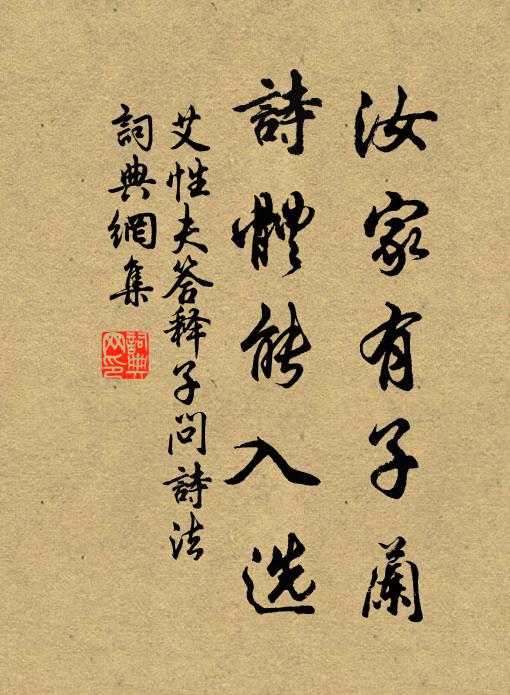 汝家有子蘭
詩體能入选
艾性夫答释子问詩法
詞典網集
詞典
网印